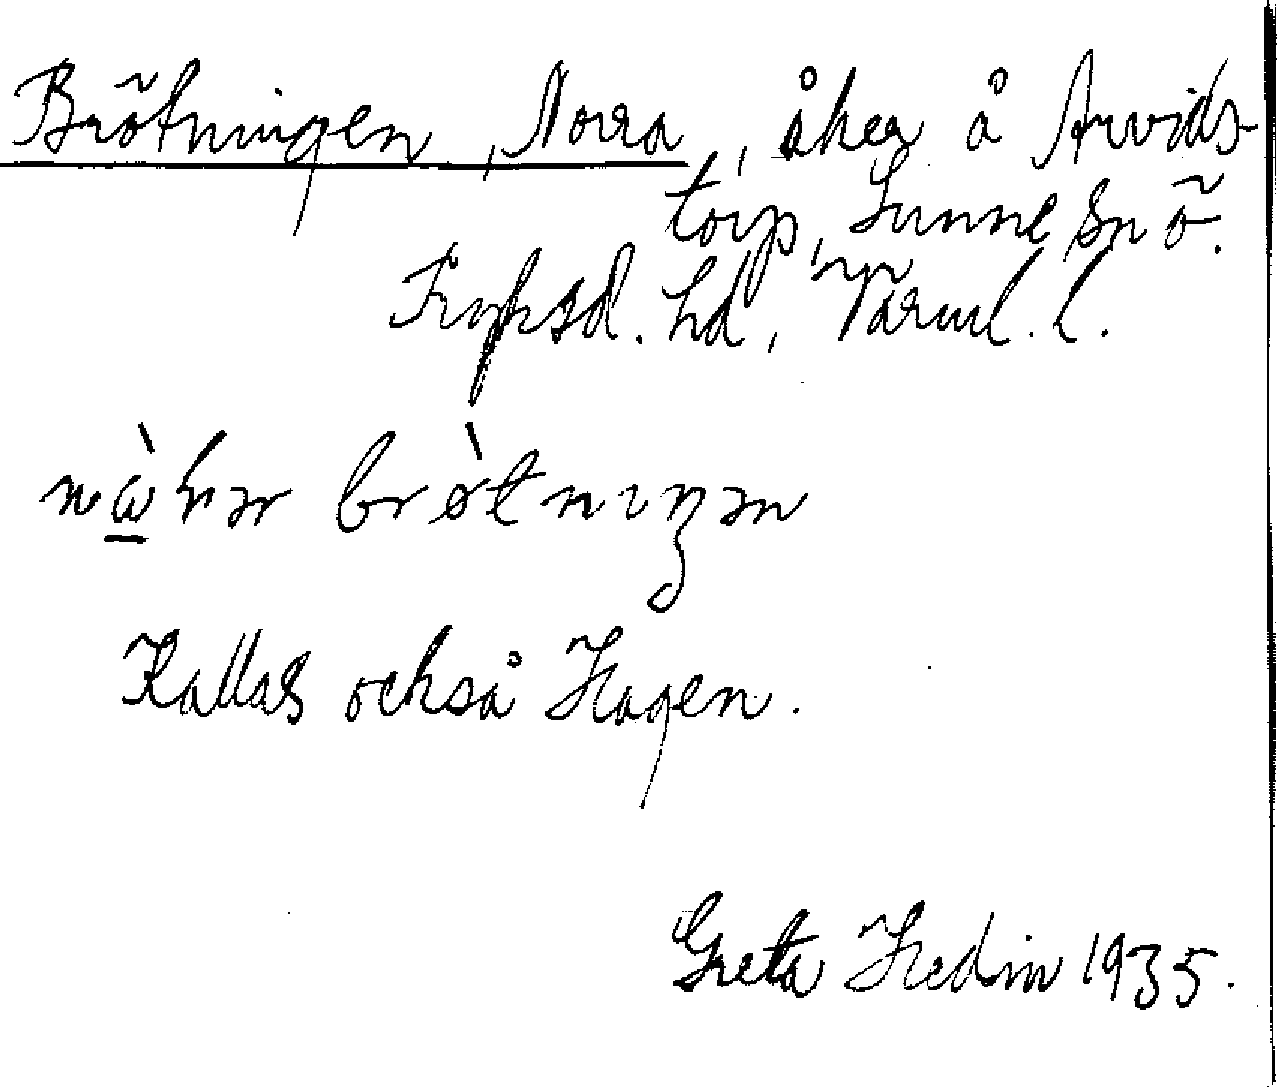 Brötningen, Norra, åker å Arvids-
torp, Sunne sn ö.
Fryksd. hd, Värml. l.
nὼrər brø̀tnıŋən
Kallas också Hagen.
Greta Hedin 1935.